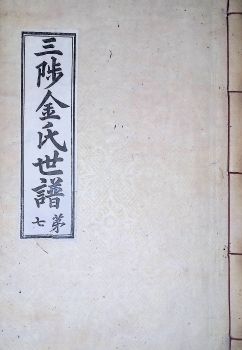 三陟金氏世譜
第七